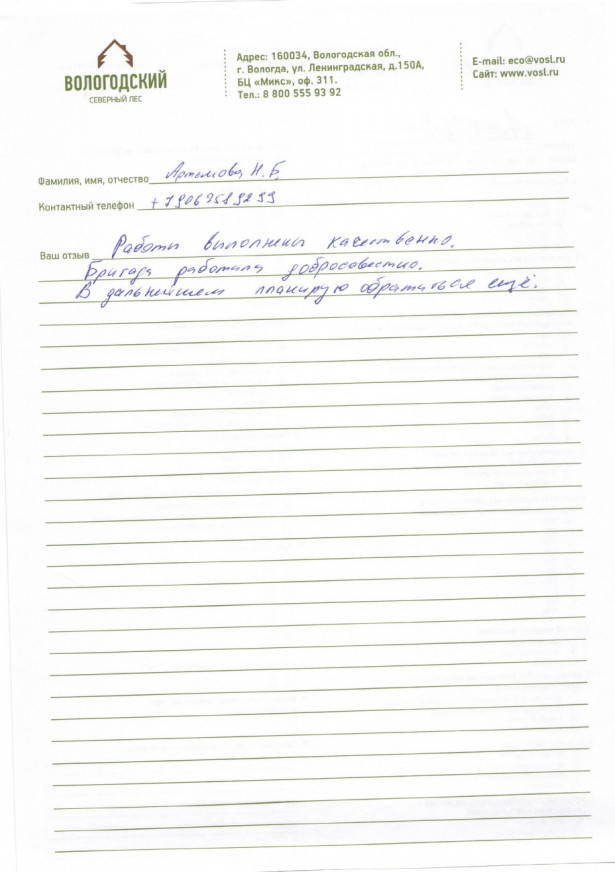 ВОЛОГОДСКИЙ
СЕВЕРНЫЙ ЛЕС
Адрес: 160034, Вологодская обл.,
г. Вологда, ул. Ленинградская, д.150А,
БЦ «Микс», оф. 311.
Тел.: 8 800 555 93 92
E-mail: eco@vosl.ru
Сайт: www.vosl.ru
Фамилия, имя, отчество Артемова Н.Б.
Контактный телефон +79067589299
Ваш отзыв Работы выполнены качественно.
Бригада работала добросовестно.
В дальнейшем планирую обратиться ещё.